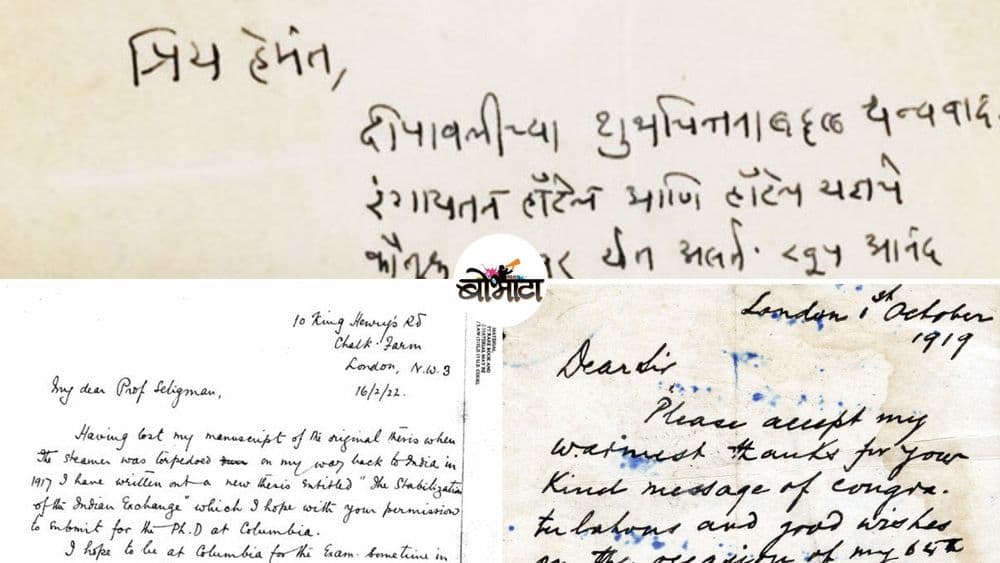 प्रिय हेमंत,
दीपावलीच्या शुभचिंतनाबद्दल धन्यवाद.
रंगायतन हॉटेल आणि हॉटेल
येत आनंद
बोभाटा
10 King Henry's Rd
Chalk Farm
London, N.W. 3
16/2/22.
My dear Prof Seligman,
Having lost my manuscript of the original thesis when
the steamer was torpedoed on my way back to India in
1917 I have written out a new thesis entitled "The Stabilization
of the Indian Exchange" which I hope with your permission
to submit for the Ph.D at Columbia.
I hope to be at Columbia for the Exam. sometime in
London 1st October
1919
Dear Sir
Please accept my
warmest thanks for your
Kind message of congra-
tulations and good wishes
on the occasion of my 65th